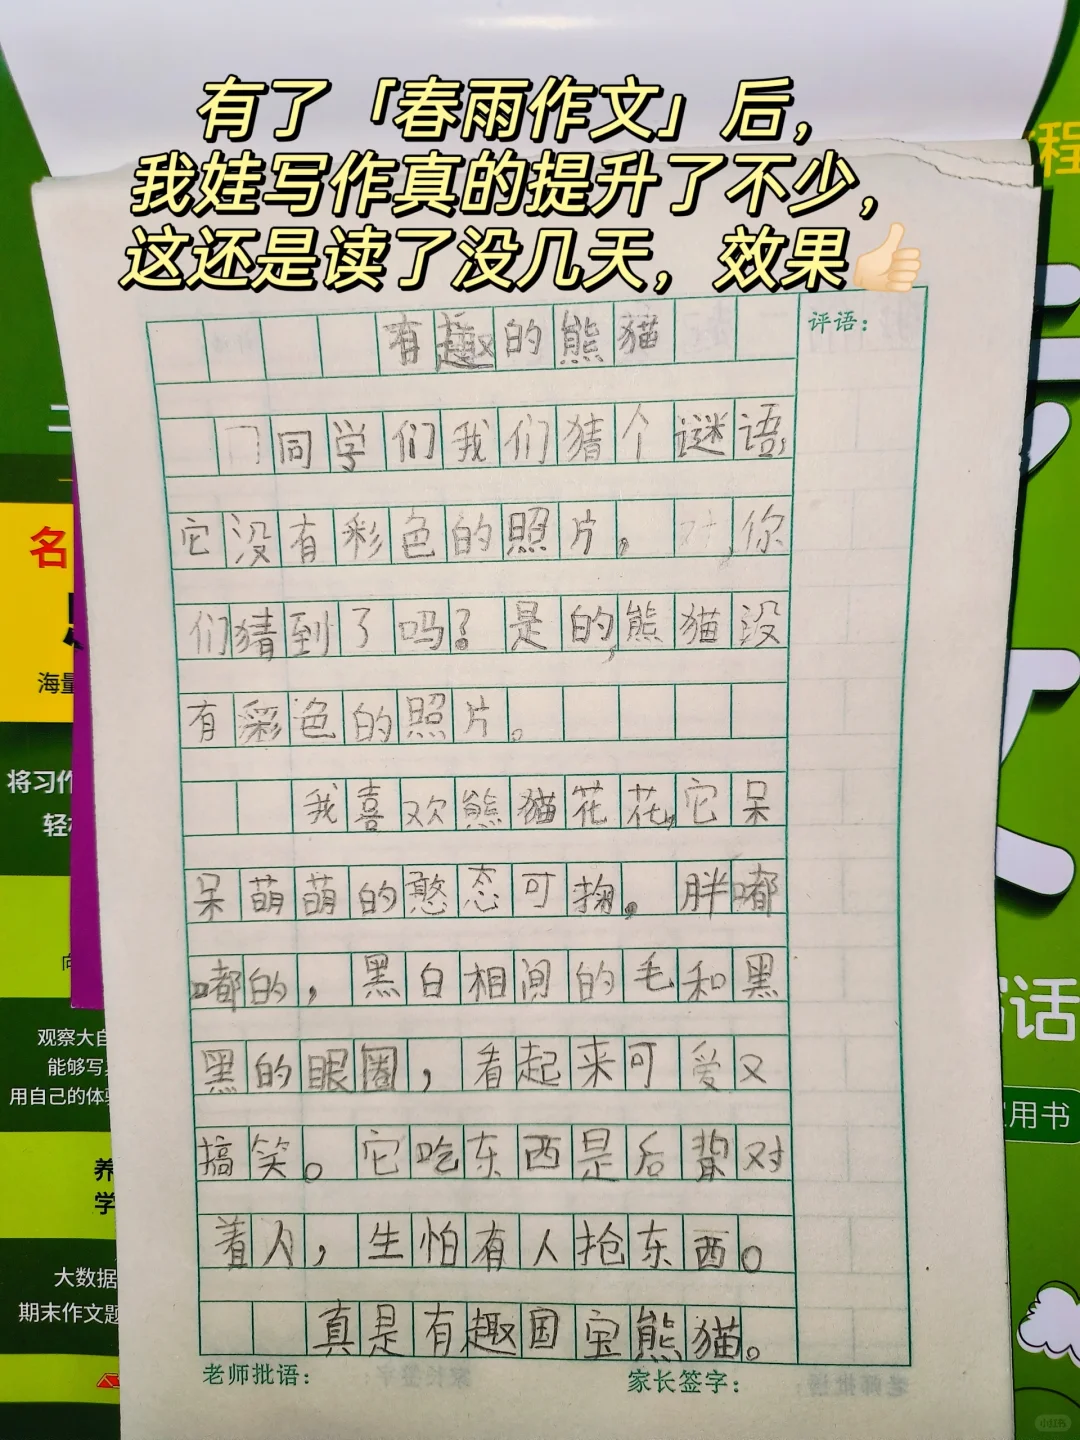 有了「春雨作文」后，
我娃写作真的提升了不少，
这还是读了没几天，效果👍🏻
有趣的熊猫
评语：
同学们我们猜个谜语，
它没有彩色的照片。对，你
们猜到了吗？是的，熊猫没
有彩色的照片。
我喜欢熊猫花花，它呆
呆萌萌的憨态可掬。胖嘟
嘟的，黑白相间的毛和黑
黑的眼圈，看起来可爱又
搞笑。它吃东西是后背对
着人，生怕有人抢东西。
真是有趣国宝熊猫。
老师批语：
家长签字：
程
名
海量
将习作
轻
向
观察大自
能够写
用自己的体
养
学
大数据
期末作文题
话
用书
小红书